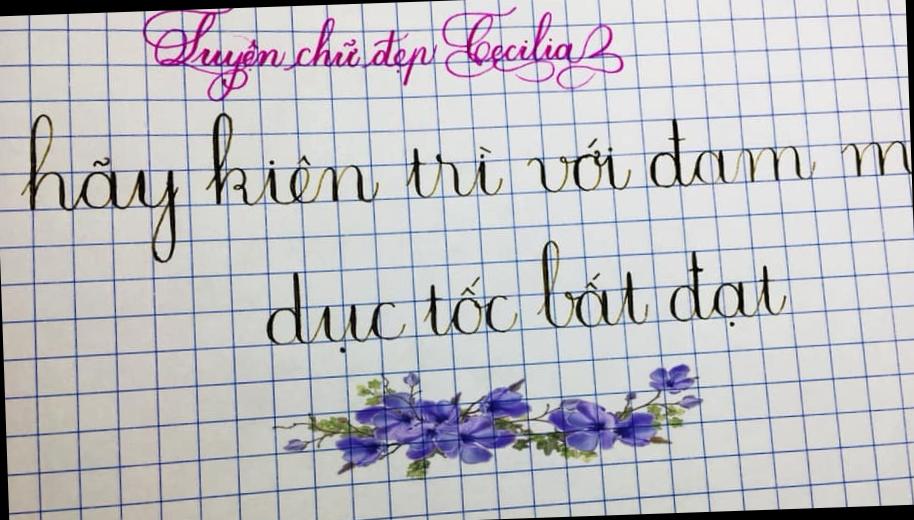 Luyện chữ đẹp Cecilia
hãy kiên trì với đam m
dục tốc bất đạt